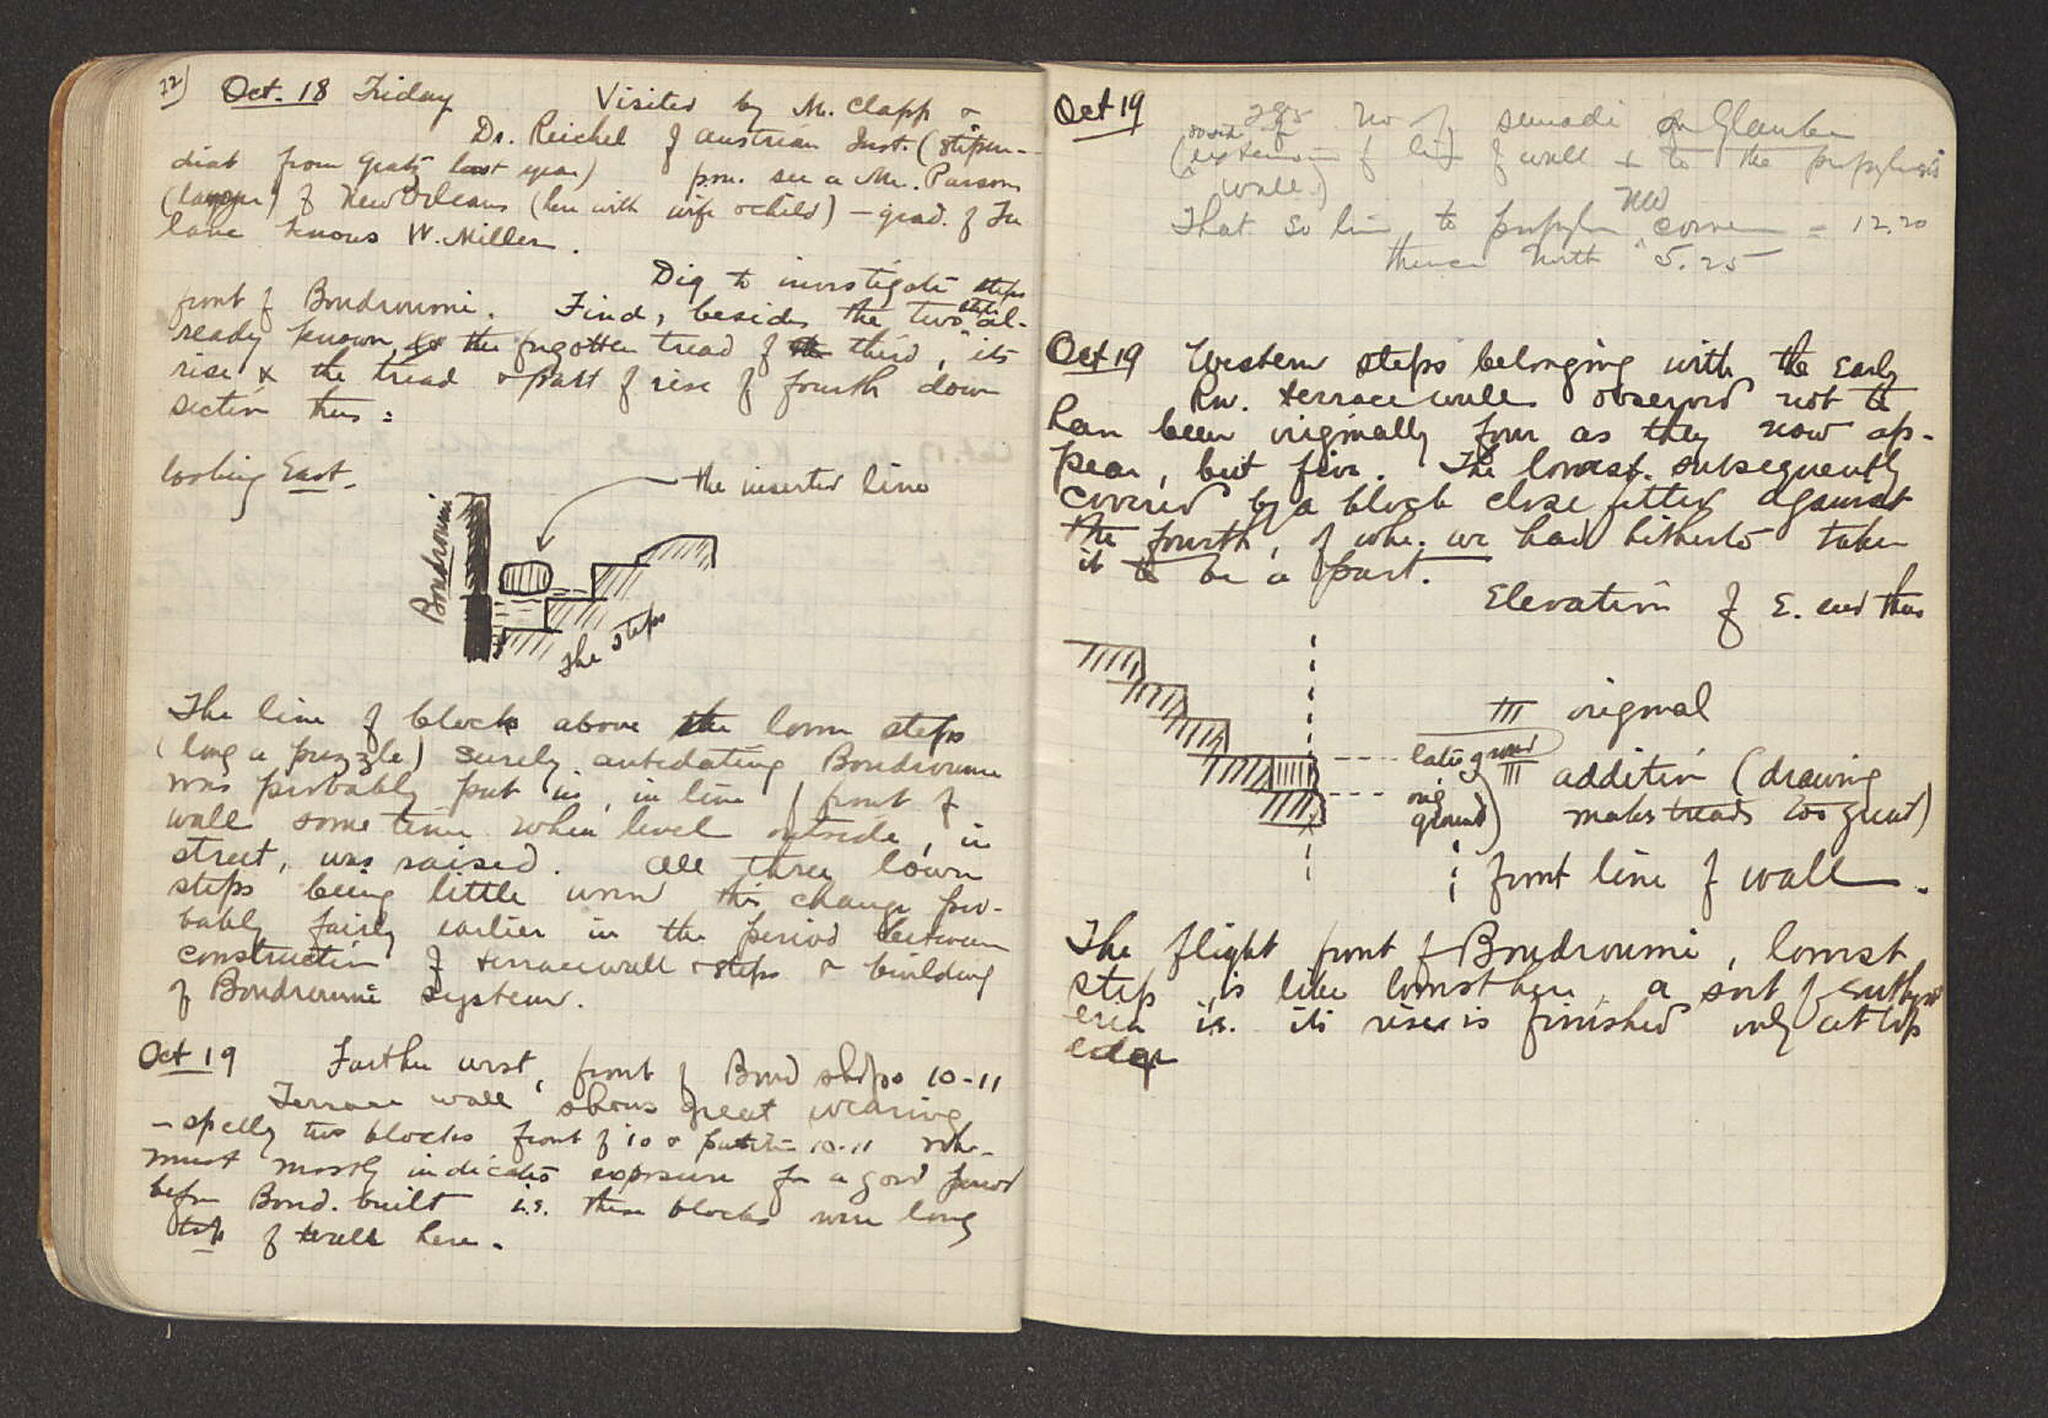 72)
Oct. 18 Friday Visited by Mr. Clapp &
Dr. Reichel of Austrian Inst. (stipen-
diat from Gratz last year) p.m. see a Mr. Parsons
(lawyer) of New Orleans (here with wife & child) – grad. of Tu
lane knows W. Miller.
Dig to investigate steps
front of Boudroumi. Find, besides the two steps al-
ready known, the forgotten tread of third, its
rise & the tread & part of rise of fourth down
section thus:
looking East.
the inserted line
Boudroumi
the steps
The line of blocks above the lower steps
(long a puzzle) surely antedating Boudroumi
was probably put in, in line front of
wall some time when level outside, in
street, was raised. All three lower
steps being little worn this change pro-
bably fairly earlier in the period between
construction of terrace wall & steps & building
of Boudroumi system.
Oct 19 Farther west, front of Boud shops 10-11
Terrace wall shows great wearing
– spclly two blocks front of 10 & partition 10-11 whc.
must mostly indicate exposure for a good period
before Boud. built i.e. these blocks were long
top of wall here.
Oct 19
No of
(extension of line of wall & to the propylon's
wall)
That So line to propylon NW corner = 12.20
thence North 5.25
Oct 19 Western steps belonging with the early
Rn. terrace wall observed not to
have been originally four as they now ap-
pear, but five. The lowest subsequently
covered by a block close fitted against
the fourth, of whc. we had hitherto taken
it to be a part.
Elevation of E. end thus
original
later ground
addition (drawing
orig
ground)
makes treads too great)
front line of wall.
The flight front of Boudroumi, lowest
step is like lowest here, a sort of euthyn
eria i.e. its rise is finished only at top
edge